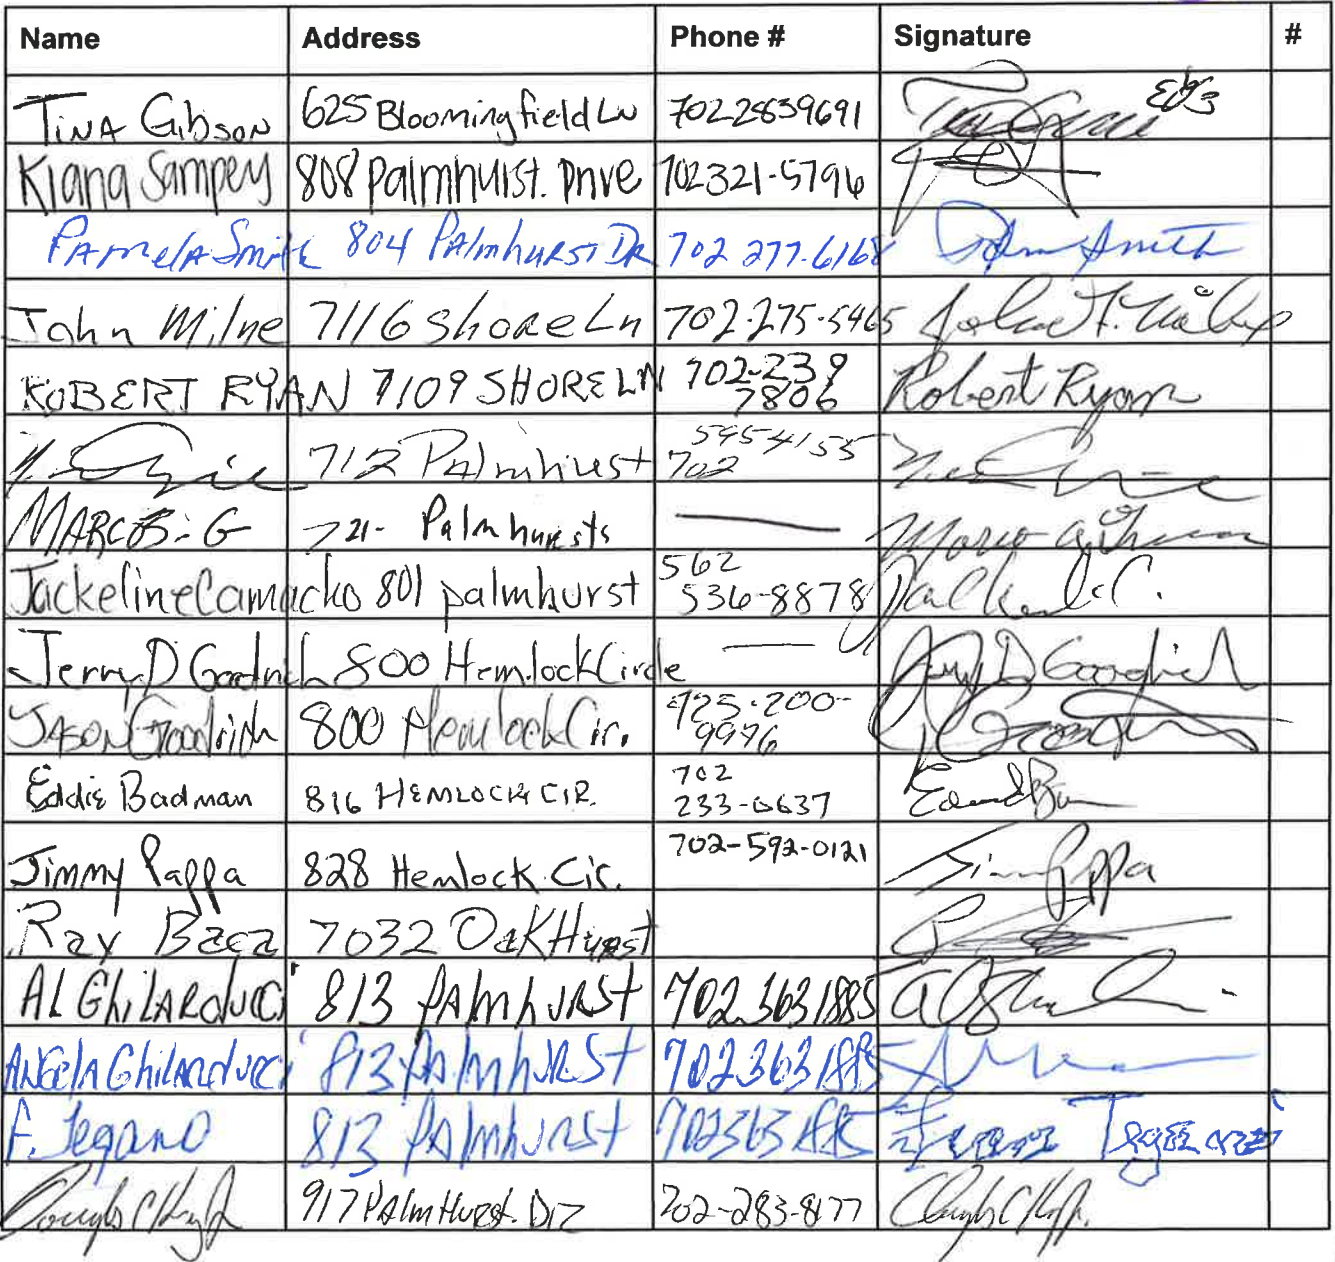 Name Address Phone # Signature #
TINA Gibson 625 Bloomingfield Ln 7022839691
Kiana Sampey 808 Palmhurst. Drive 702321-5796
PAMelA Smith 804 PAlmhuRST DR 702 277-6168 Pam Smith
John Milne 7116 Shore Ln 702-275-5465
ROBERT RYAN 7109 SHORE LN 702-239
7806 Robert Ryan
5954155
712 PAlmhurst 702
MARCOS - G 721- Palmhursts —
562
Jackeline Camacho 801 palmhurst 536-8878
Jerry D Goodrich 800 Hemlock Circle — Jerry D Goodrich
JASON Goodrich 800 Hemlock Cir. 725-200-
9976
Eddie Badman 816 HEMLOCK CIR. 702
233-0637
Jimmy Pappa 828 Hemlock Cir. 702-592-0121 Jimmy Pappa
Ray Baca 7032 OakHurst
AL GhiLARduCCi 813 PAlmhuRSt 702 3631885
ANGElA GhilARduCCi 813 PAlmhuRSt 702 3631885
F. Tegano 813 PAlmhuRSt 702 363 1885
917 PAlmHurst. DR 702-283-8177